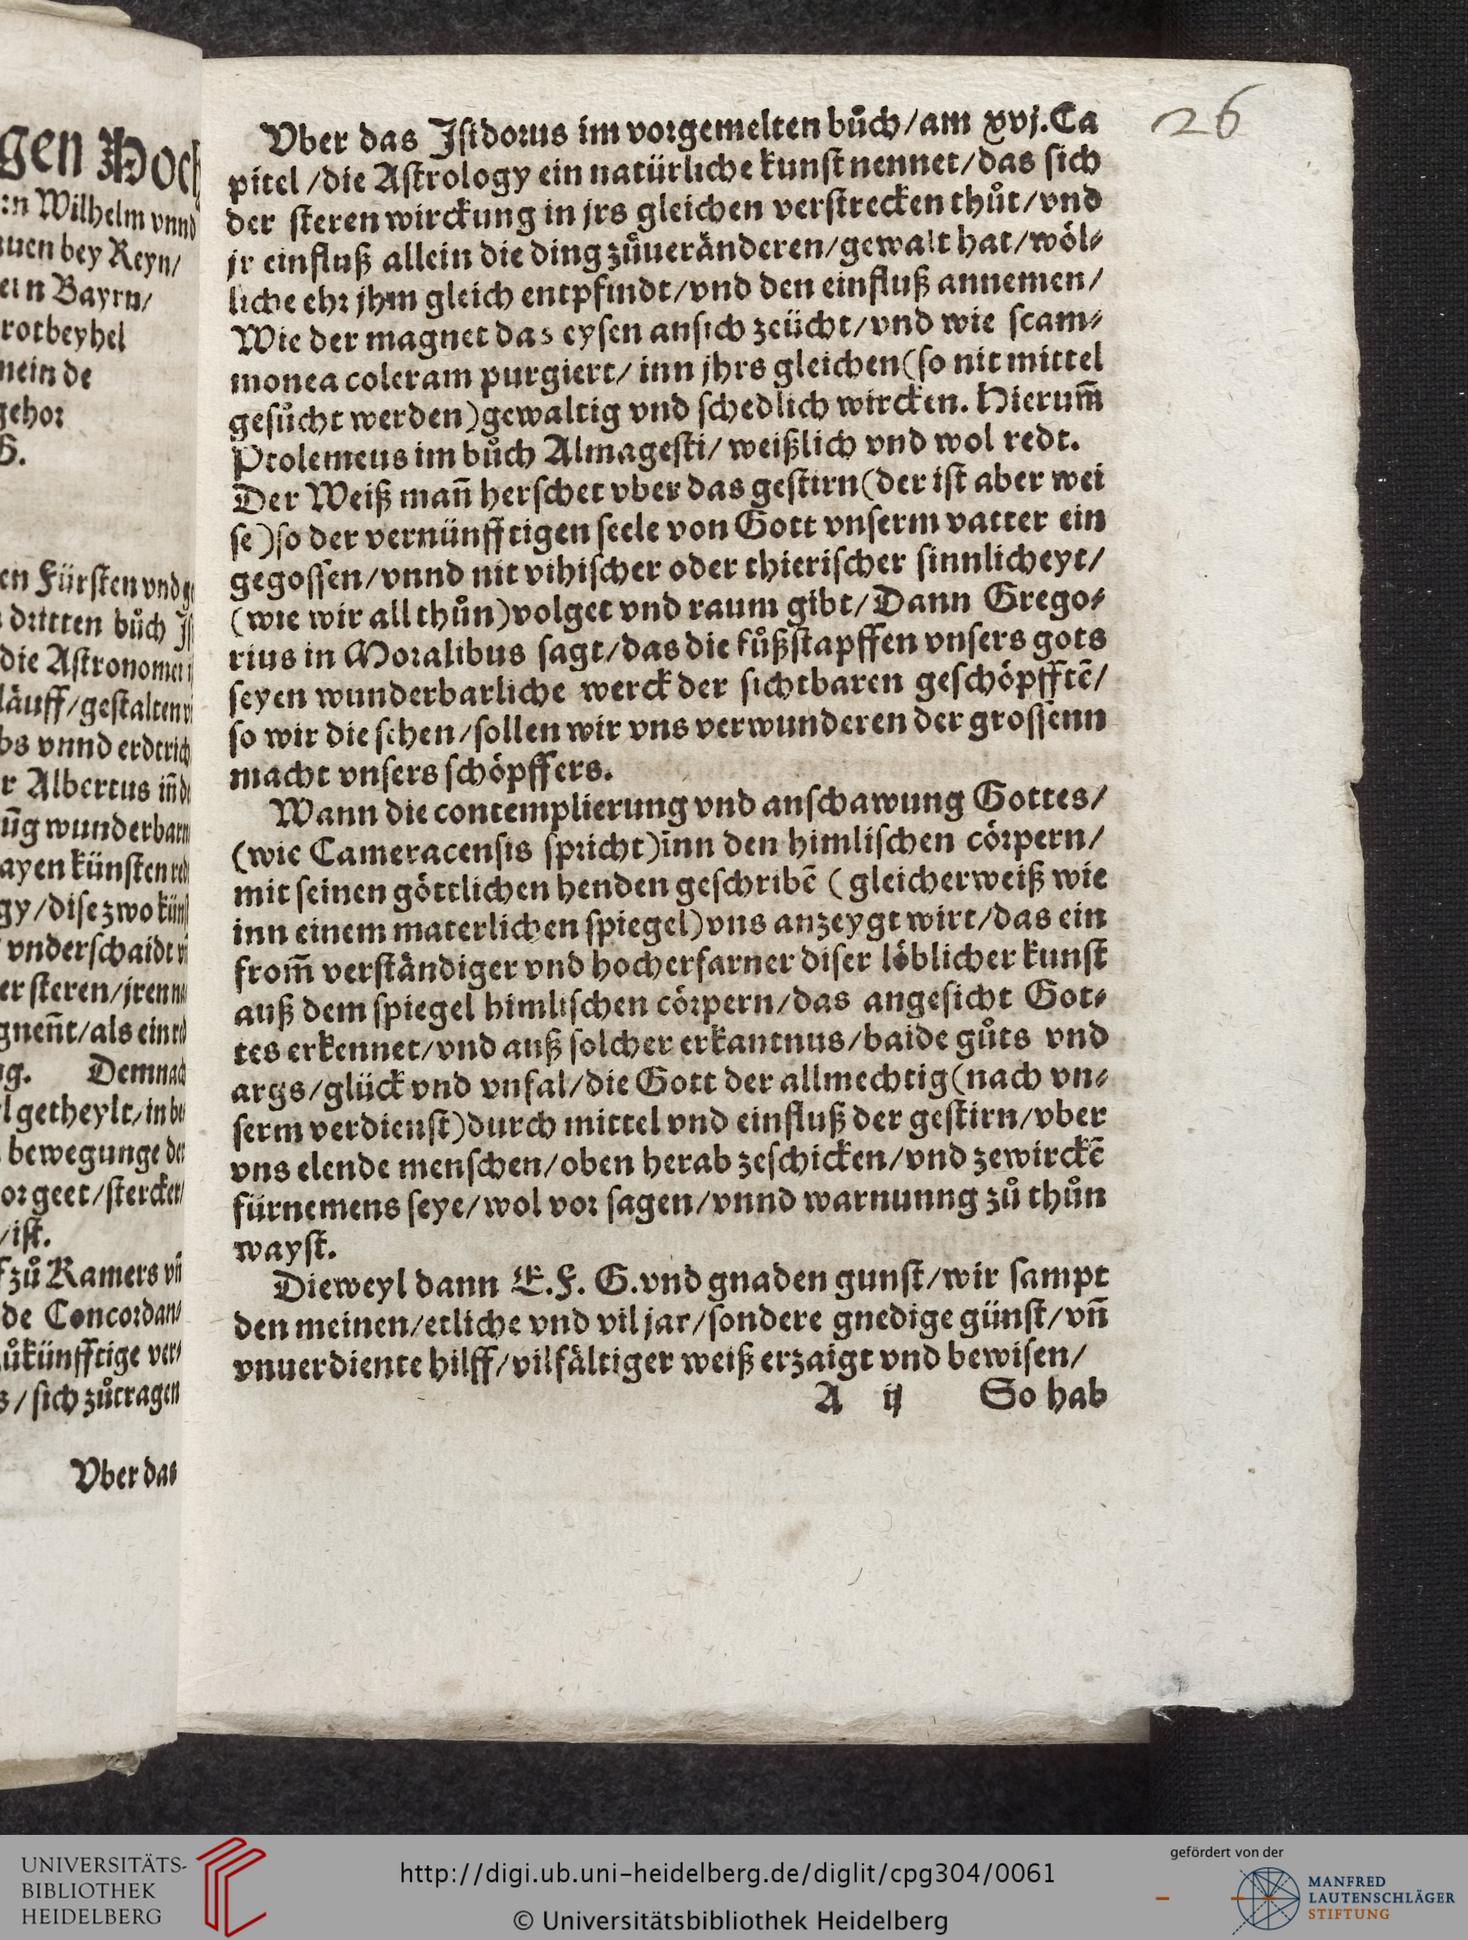 gen Hoch
rn Wilhelm vnnd
auen bey Reyn/
ein Bayrn/
rotbeyhel
mein de
gehor
G.
en Fürsten vnd
dritten bůch
die Astronomei
läuff/gestalten
bs vnnd erdtrich
r Albertus iñ
ũg wunderbarn
ayen künsten
gy/dise zwo
vnderschaidt
er steren/jren
gneñt/als ein
ng. Demnach
l getheylt/in
bewegunge der
or geet/stercker/
/ist.
zů Kamers vñ
de Concordan⸗
ůkünfftige ver⸗
s/sich zůtragen
Vber das
26
Vber das Jsidorus im vorgemelten bůch/am xvj.Ca
pitel/die Astrology ein natürliche kunst nennet/das sich
der steren wirckung in jrs gleichen verstrecken thůt/vnd
jr einfluß allein die ding zůueränderen/gewalt hat/wöl⸗
liche ehr jhm gleich entpfindt/vnd den einfluß annemen/
Wie der magnet das eysen ansich zeücht/vnd wie scam⸗
monea coleram purgiert/ inn jhrs gleichen(so nit mittel
gesůcht werden)gewaltig vnd schedlich wircken. Hierum̃
Ptolemeus im bůch Almagesti/ weißlich vnd wol redt.
Der Weiß mañ herschet vber das gestirn(der ist aber wei
se)so der vernünfftigen seele von Gott vnserm vatter ein
gegossen/vnnd nit vihischer oder thierischer sinnlicheyt/
(wie wir all thůn)volget vnd raum gibt/Dann Grego⸗
rius in Moralibus sagt/das die fůßstapffen vnsers gots
seyen wunderbarliche werck der sichtbaren geschöpfftẽ/
so wir die sehen/sollen wir vns verwunderen der grossenn
macht vnsers schöpffers.
Wann die contemplierung vnd anschawung Gottes/
(wie Cameracensis spricht)inn den himlischen cörpern/
mit seinen göttlichen henden geschribẽ ( gleicherweiß wie
inn einem materlichen spiegel)vns anzeygt wirt/das ein
from̃ verständiger vnd hocherfarner diser löblicher kunst
auß dem spiegel himlischen cörpern/das angesicht Got⸗
tes erkennet/vnd auß solcher erkantnus/baide gůts vnd
args/glück vnd vnfal/die Gott der allmechtig(nach vn⸗
serm verdienst)durch mittel vnd einfluß der gestirn/vber
vns elende menschen/oben herab zeschicken/vnd zewirckẽ
fürnemens seye/wol vor sagen/vnnd warnunng zů thůn
wayst.
Dieweyl dann E.F. G.vnd gnaden gunst/wir sampt
den meinen/etliche vnd vil jar/sondere gnedige günst/vñ
vnuerdiente hilff/vilfältiger weiß erzaigt vnd bewisen/
A ij So hab
UNIVERSITÄTS-
BIBLIOTHEK
HEIDELBERG
http://digi.ub.uni-heidelberg.de/diglit/cpg304/0061
© Universitätsbibliothek Heidelberg
gefördert von der
MANFRED
LAUTENSCHLÄGER
STIFTUNG